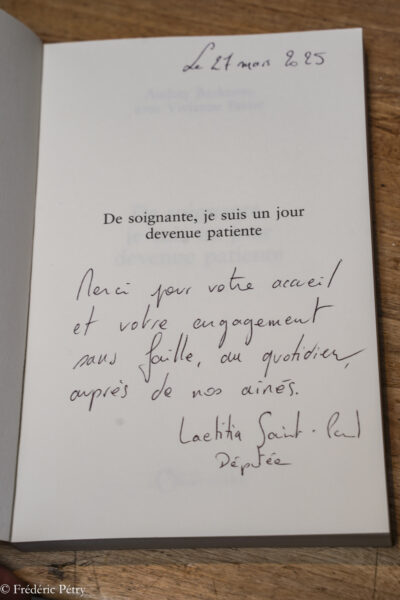 Le 27 mars 2025
De soignante, je suis un jour
devenue patiente
Merci pour votre accueil
et votre engagement
sans faille, au quotidien,
auprès de nos aînés.
Laetitia Saint-Paul
Députée
© Frédéric Pétry